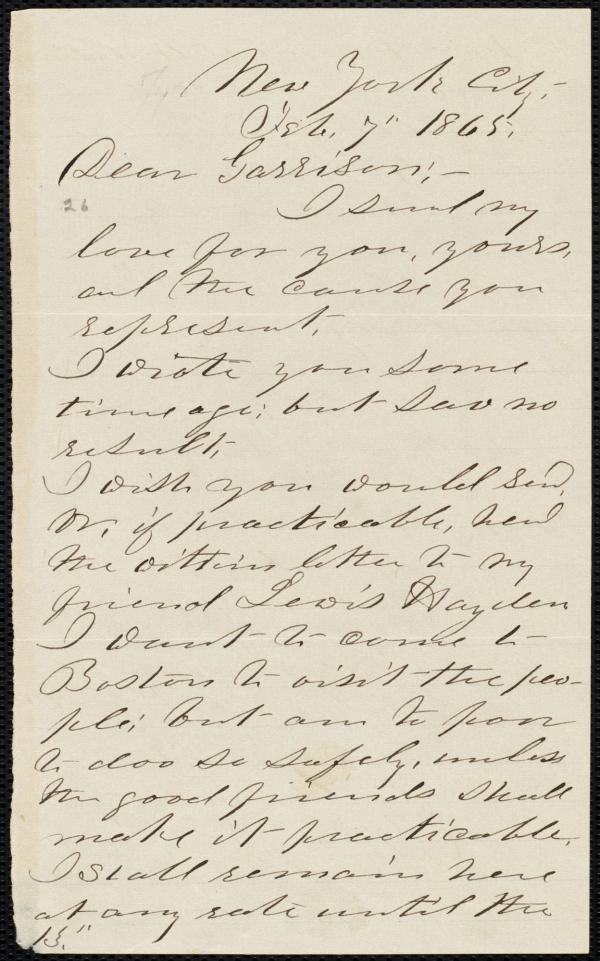 New York City,
Feb, 7" 1865.
Dear Garrison;—
26
I send my
love for you, yours,
and the cause you
represent,
I wrote you some
time ago; but saw no
result,
I wish you would send,
or, if practicable, hand
the within letter to my
friend Lewis Hayden
I want to come to
Boston to visit the peo-
ple; but am to poor
to doo so safely, unless
the good friends shall
make it practicable.
I shall remain here
at any rate until the